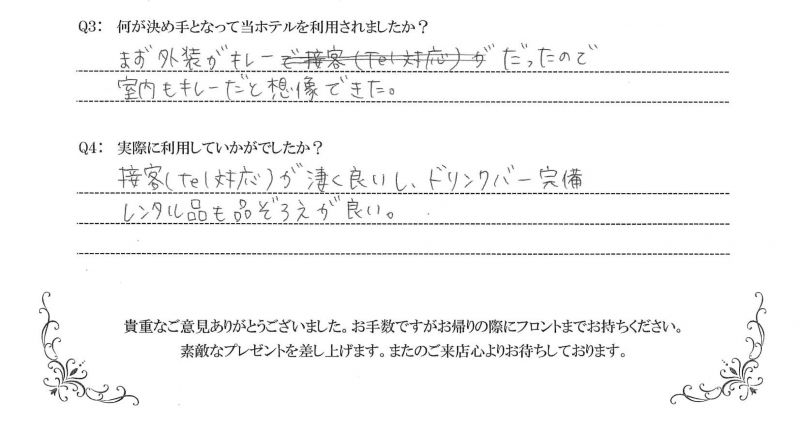 Q3: 何が決め手となって当ホテルを利用されましたか？
まず外装がキレーで接客(Tel対応)がだったので
室内もキレーだと想像できた。
Q4: 実際に利用していかがでしたか？
接客(Tel対応)が凄く良いし、ドリンクバー完備
レンタル品も品ぞろえが良い。
貴重なご意見ありがとうございました。お手数ですがお帰りの際にフロントまでお持ちください。
素敵なプレゼントを差し上げます。またのご来店心よりお待ちしております。